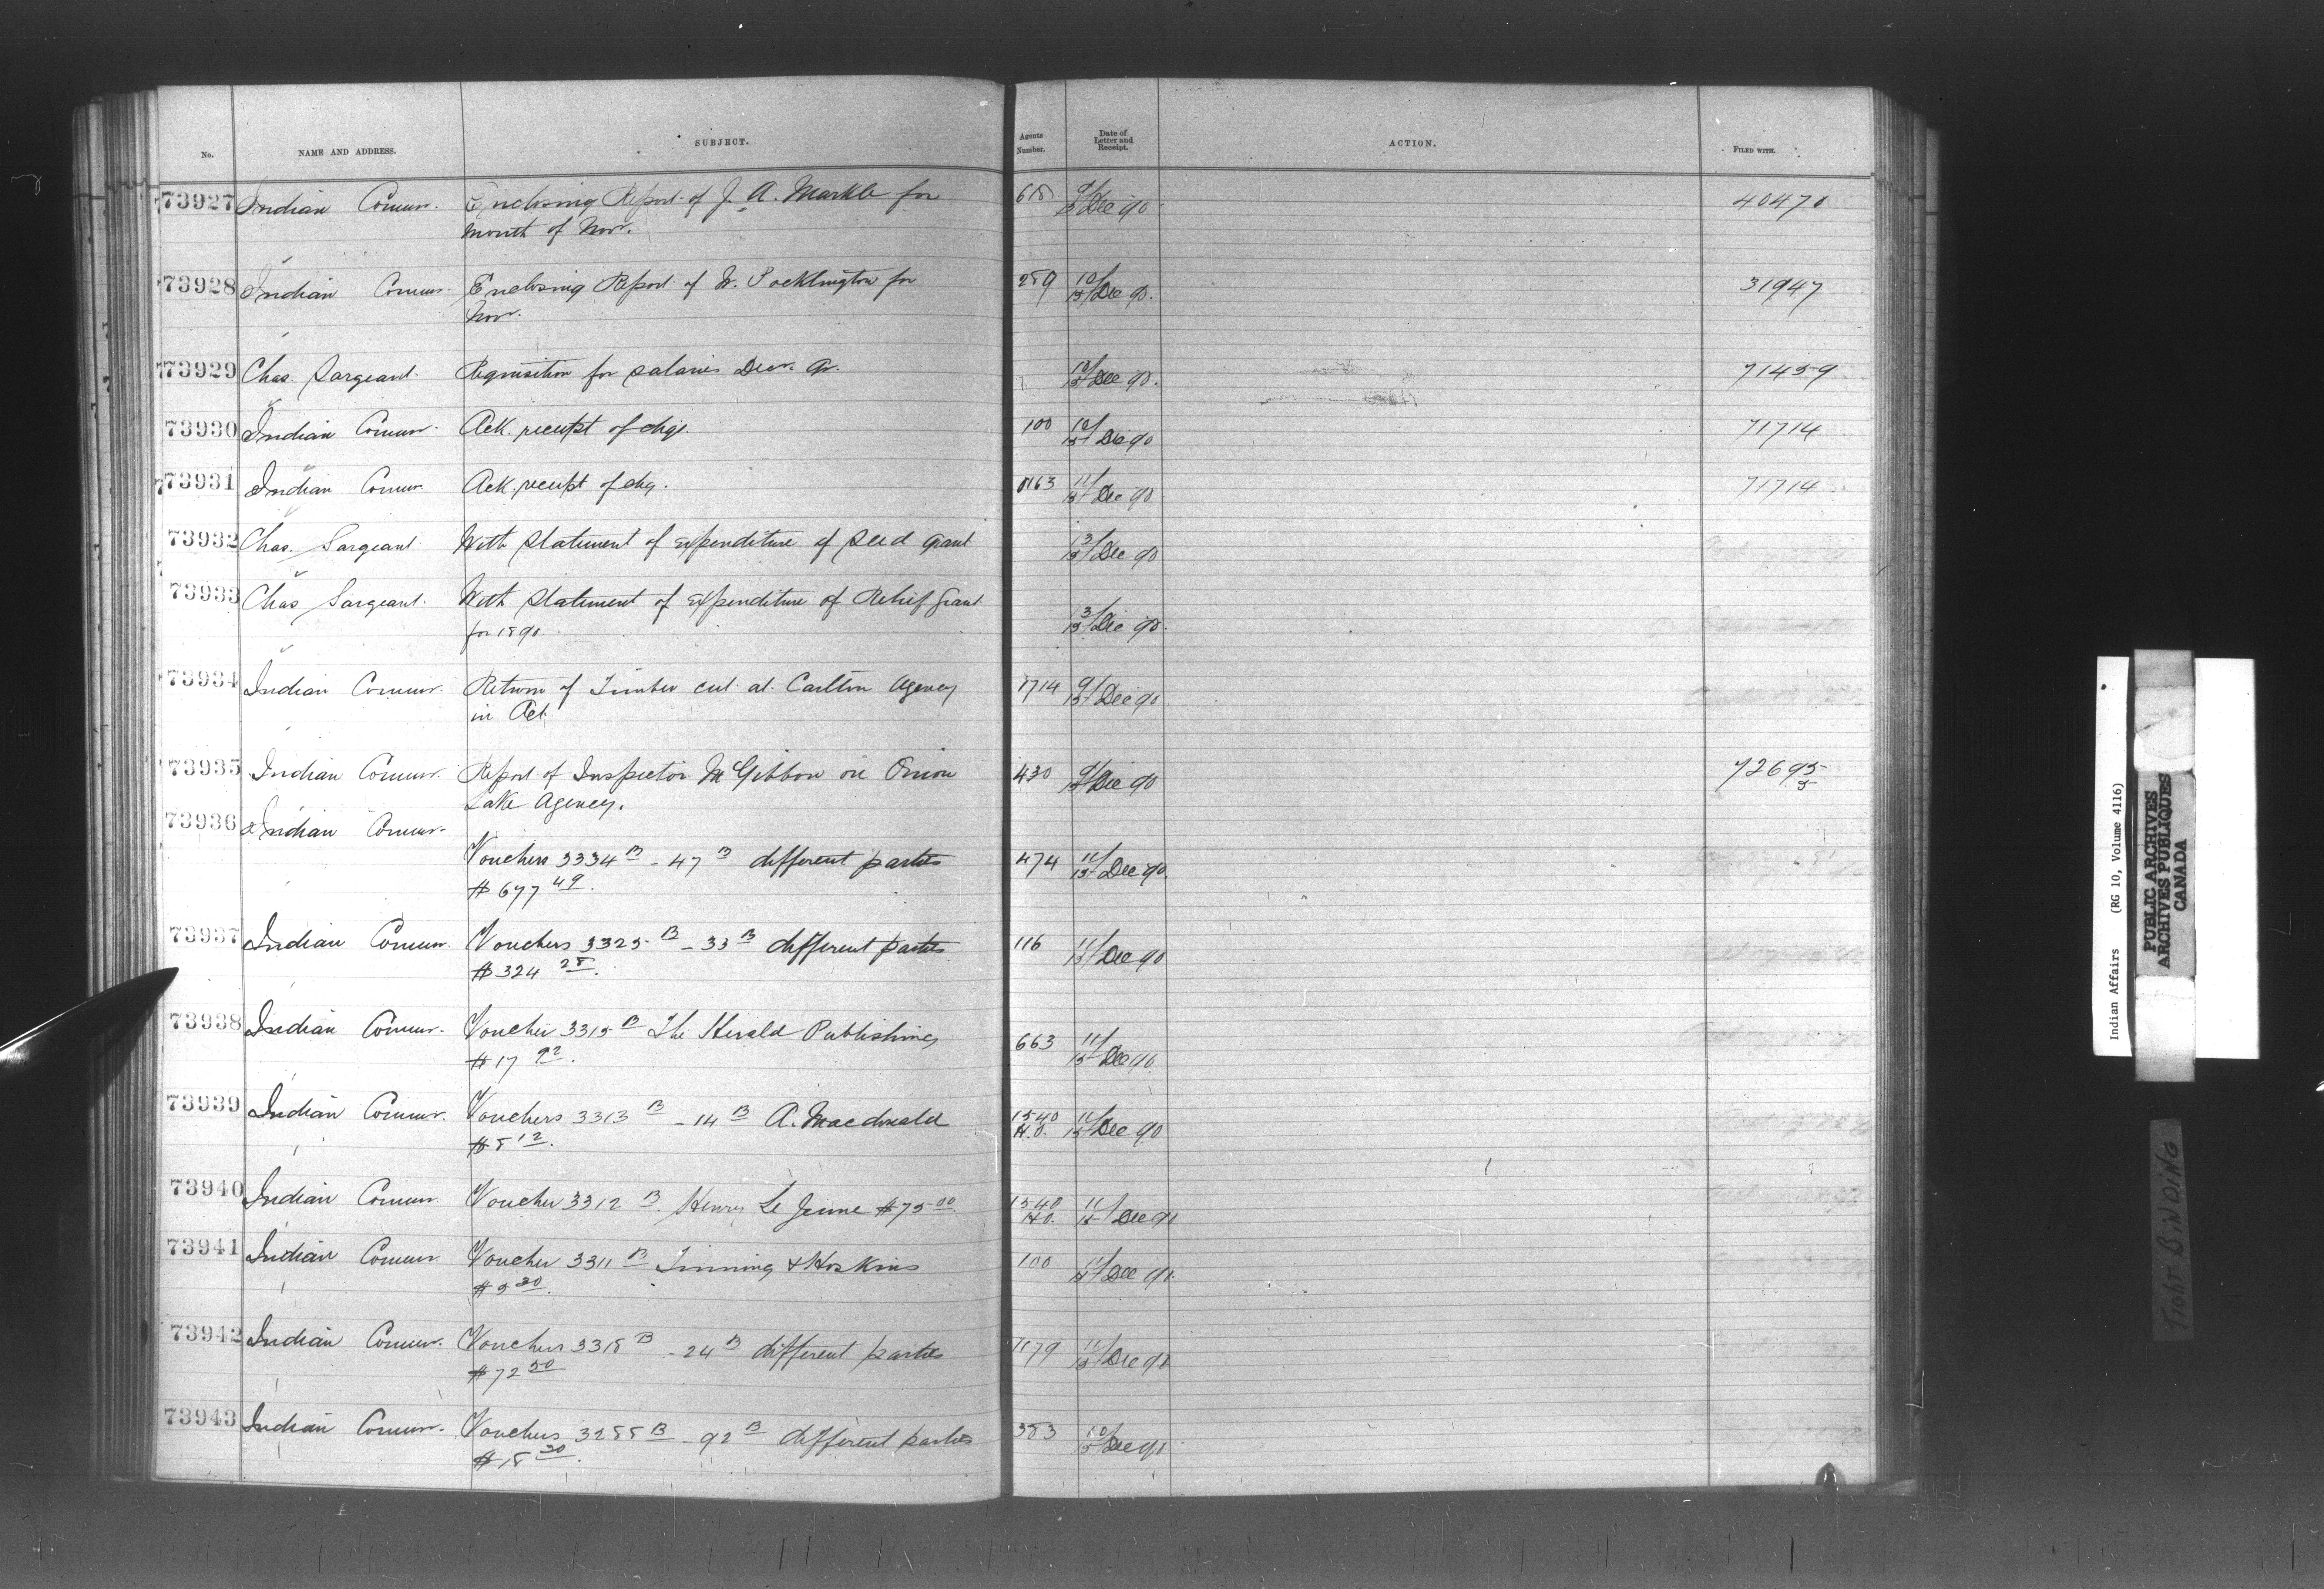 No. NAME AND ADDRESS. SUBJECT. Agents Number. Date of Letter and Receipt. ACTION. FILED WITH.
73927 Indian Commr. Enclosing Report of J. A. Markle for 9/15 Dec 90 40470
month of Novr.
73928 Indian Commr. Enclosing Report of W. Pocklington for 289 10/15 Dec 90. 31947
Novr.
73929 Chas. Sargeant. Requisition for salaries Decr. Qr. 13/15 Dec 90. 71459
73930 Indian Commr. Ack. receipt of chq. 100 10/15 Dec 90 71714
73931 Indian Commr Ack. receipt of chq. 1163 11/15 Dec 90 71714
73932 Chas. Sargeant. With statement of expenditure of seed grant 13/15 Dec 90
73933 Chas Sargeant. With statement of expenditure of Relief Grant 13/15 Dec 90.
for 1890.
73934 Indian Commr. Return of Timber cut at Carlton Agency 1714 9/15 Dec 90
in Oct.
73935 Indian Commr. Report of Inspector McGibbon on Onion 430 9/15 Dec 90 72695
Lake Agency.
73936 Indian Commr.
Vouchers 3334 B - 47 B different parties 474 11/15 Dec 90.
$677 49.
73937 Indian Commr. Vouchers 3325 B - 33 B different parties 116 11/15 Dec 90
$324 28.
73938 Indian Commr. Voucher 3315 B The Herald Publishing 663 11/15 Dec 90
$17 92.
73939 Indian Commr. Vouchers 3313 B - 14 B A. Macdonald 1540 H.O. 11/15 Dec 90
$8 12.
73940 Indian Commr Voucher 3312 B. Henry Le Jeune $75 00. 1540 H.O. 11/15 Dec 90
73941 Indian Commr Voucher 3311 B Tinning & Hoskins 100 11/15 Dec 90.
$5 30.
73942 Indian Commr. Vouchers 3318 B - 24 B different parties 1179 11/15 Dec 90
$72 50
73943 Indian Commr. Vouchers 3288 B - 92 B different parties 383 10/15 Dec 90
$18 30.
Indian Affairs (RG 10, Volume 4116)
PUBLIC ARCHIVES
ARCHIVES PUBLIQUES
CANADA
TIGHT BINDING